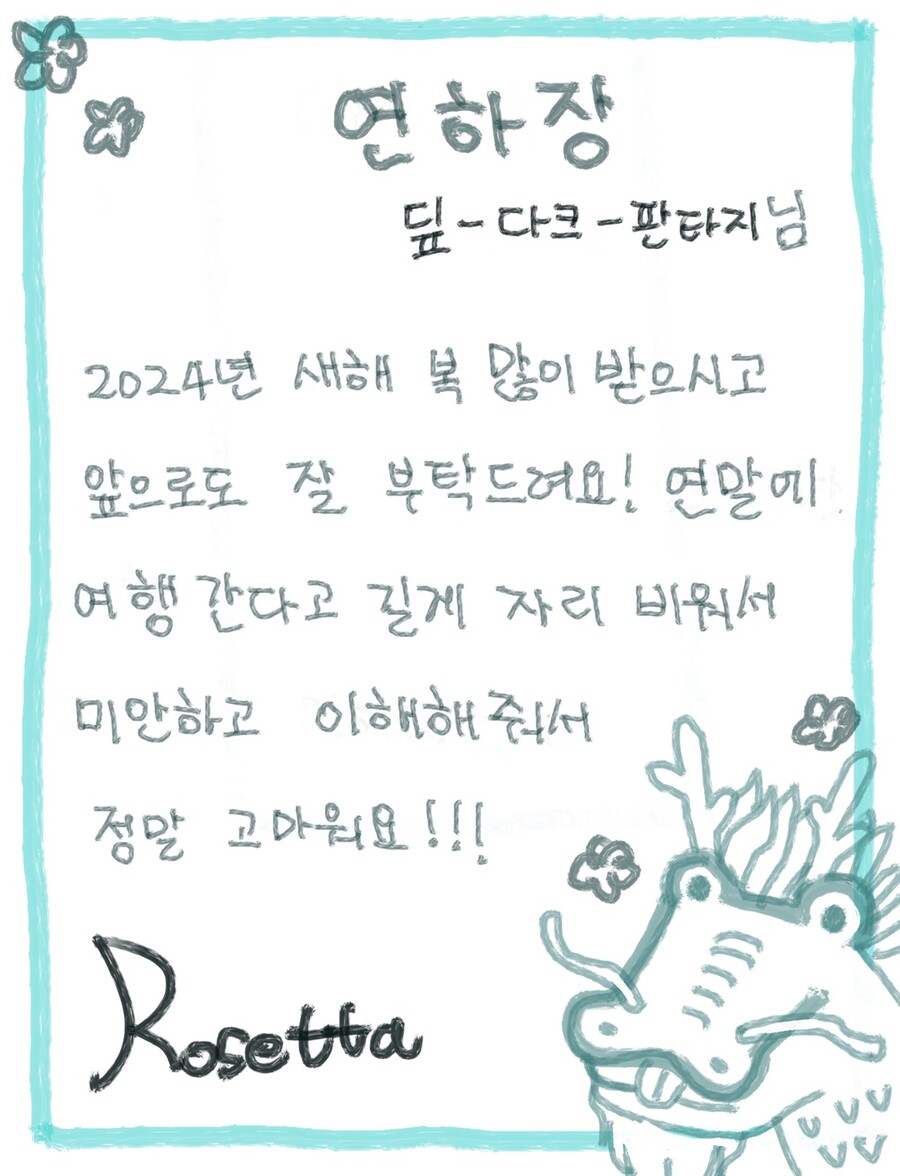 연하장
딮-다크-판타지님
2024년 새해 복 많이 받으시고
앞으로도 잘 부탁드려요! 연말에
여행간다고 길게 자리 비워서
미안하고 이해해줘서
정말 고마워요!!!
Rosetta